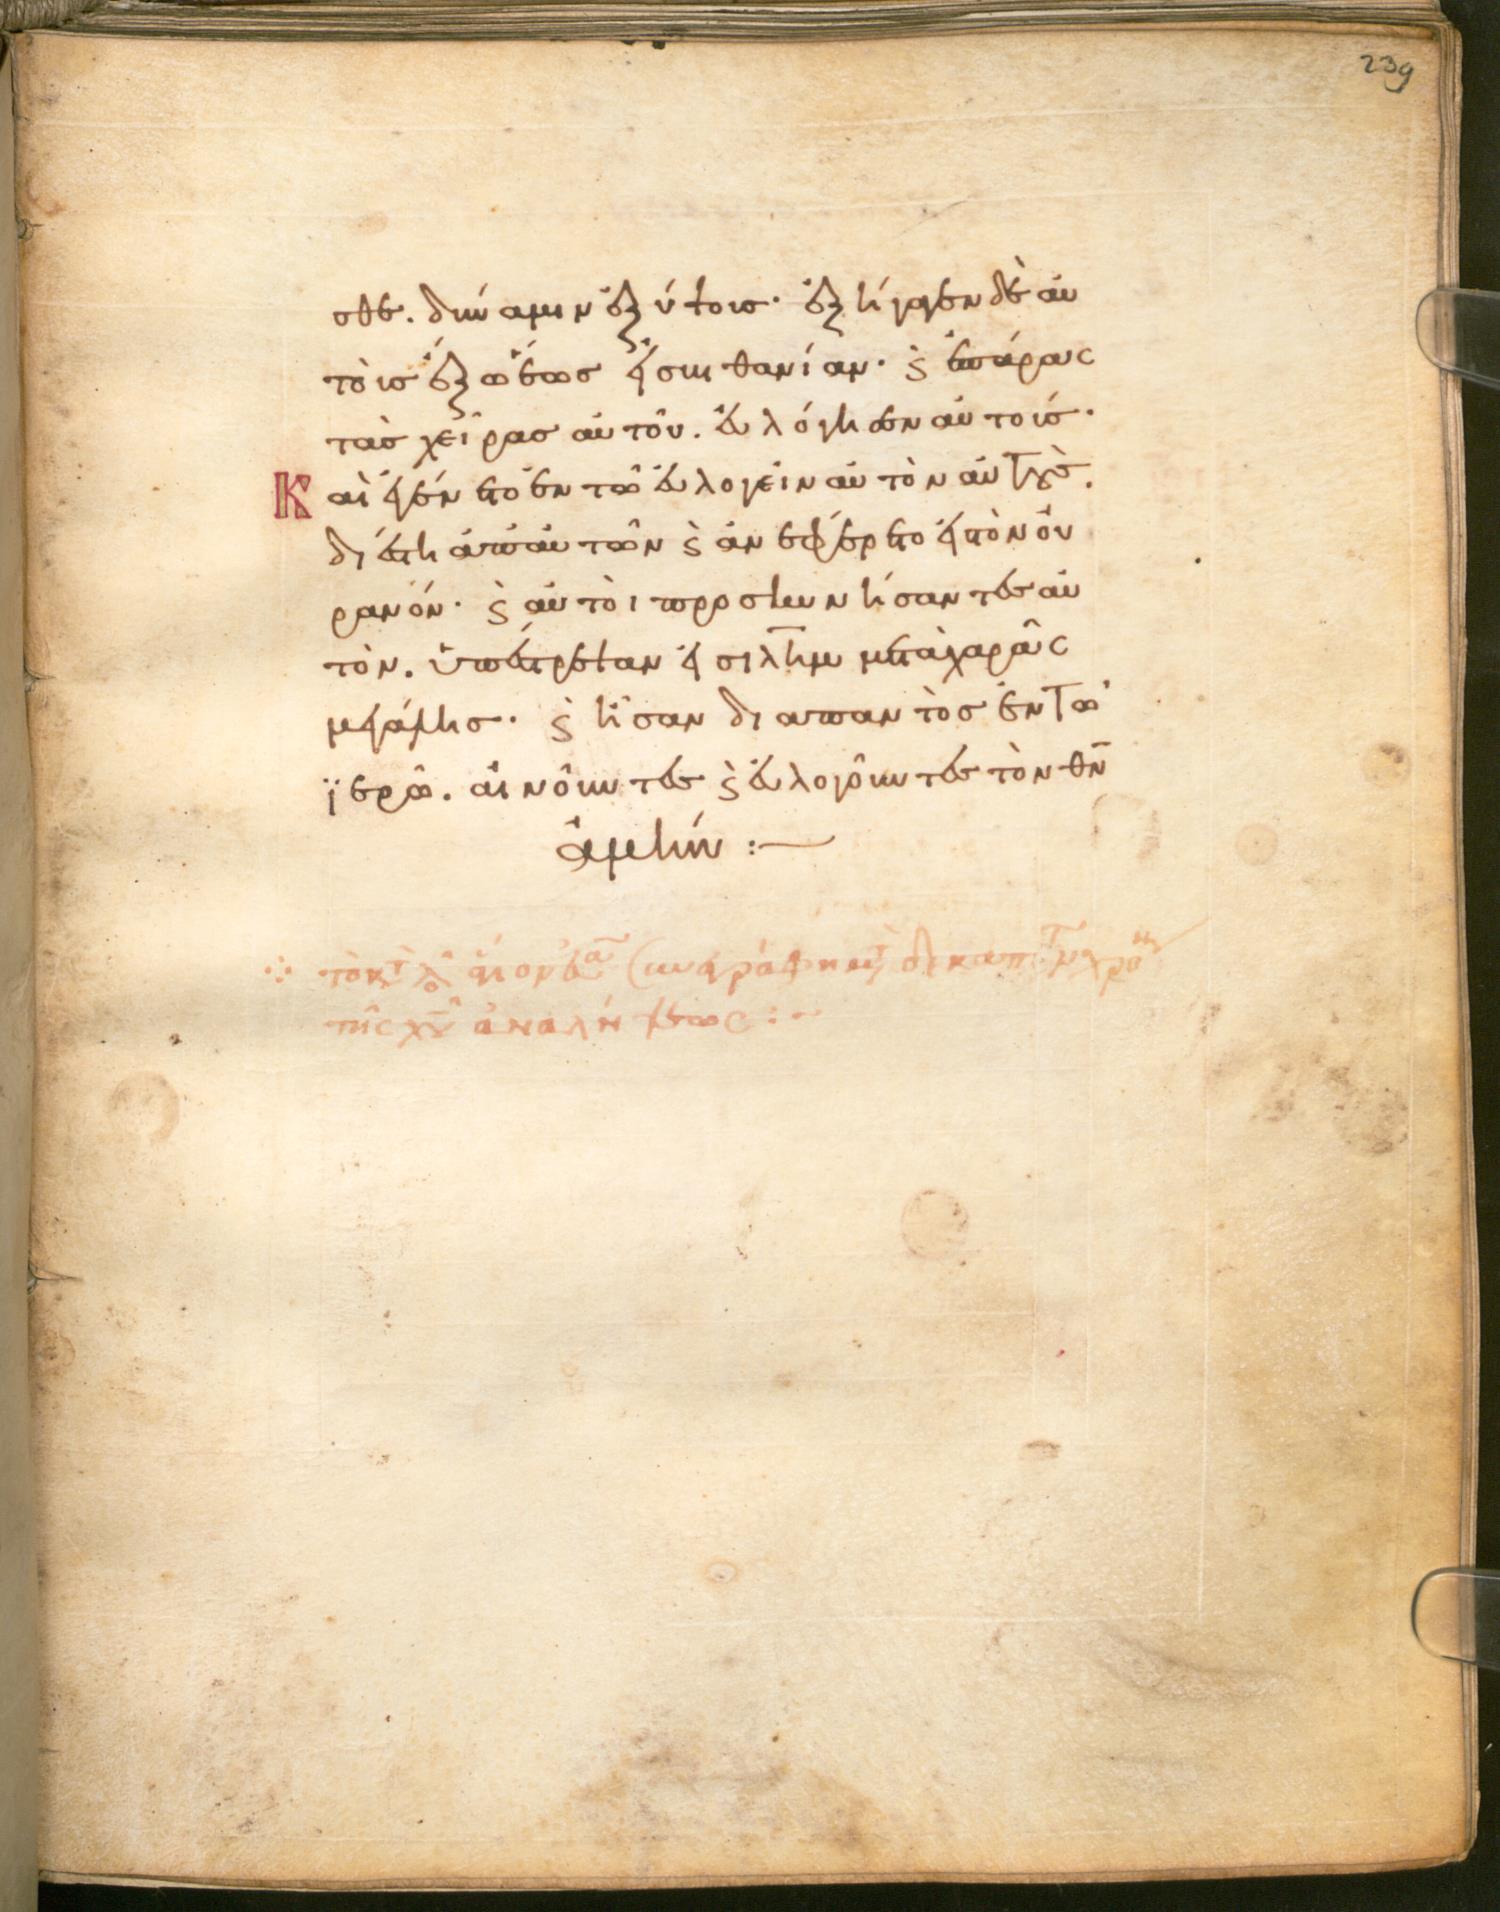 239
σθε. δύναμιν ἐξ ὕψους· ἐξήγαγεν δὲ αὐ
τοὺς ἔξω ἕως εἰς βηθανίαν· ϗ ἐπάρας
τὰς χεῖρας αὐτοῦ. εὐλόγησεν αὐτούς·
Καὶ ἐγένετο ἐν τῶ εὐλογεῖν αὐτὸν αὐτοὺς.
διέστη ἀπ' αὐτῶν ϗ ἀνεφέρετο εἰς τὸν οὐ
ρανόν· ϗ αὐτοὶ προσκυνήσαντες αὐ
τὸν. ὑπέστρεψαν εἰς ιλημ μετὰ χαρᾶς
μεγάλης· ϗ ἦσαν διαπαντὸς ἐν τῶ
ϊερῶ. αἰνοῦντες ϗ εὐλογοῦντες τὸν θν
ἀμήν :—
τὸ κτ λκ ἅγιον
τῆς χυ ἀναλήψεως :~